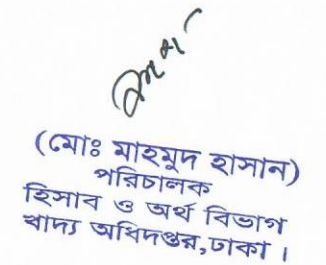 (মোঃ মাহমুদ হাসান)
পরিচালক
হিসাব ও অর্থ বিভাগ
খাদ্য অধিদপ্তর,ঢাকা।